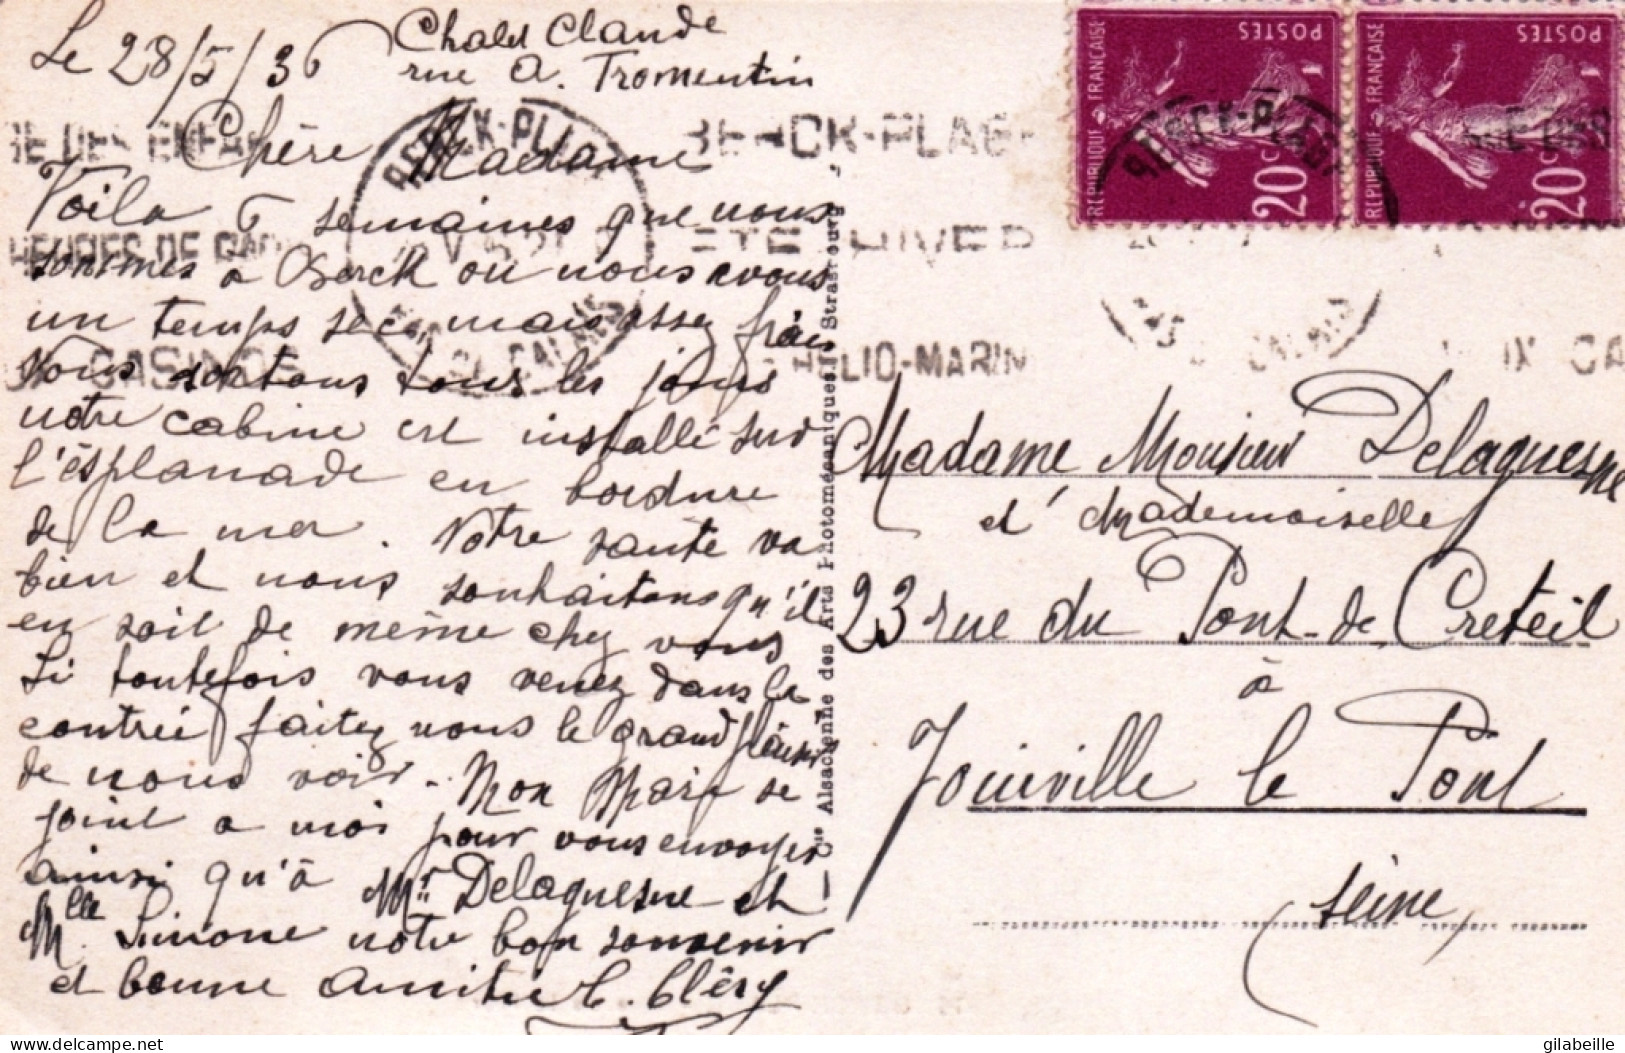 Le 28/5/36
Chalet Claude
rue A. Tromentin
Chère Madame
Voila 6 semaines que nous
sommes a Berck ou nous avons
un temps sec mais assez frais
Nous sortons tous les jours
notre cabine est installé sur
l'ésplanade en bordure
de la mer. Notre santé va
bien et nous souhaitons qu'il
en soit de même chez vous
Si toutefois vous venez dans la
contrée faitez vous le grand plaisir
de nous voir. Mon Mari se
joint a moi pour vous envoyer
ainsi qu'à Mr Delaquesne et
Mlle Simone notre bon souvenir
et bonne amitié C. Cléry
BERCK-PLAGE
PAS DE CALAIS
BERCK-PLAGE
ETE HIVER
HELIO-MARIN
CASINOS
Cie Alsacienne des Arts Photomécaniques, Strasbourg
REPUBLIQUE FRANÇAISE
POSTES
20c
REPUBLIQUE FRANÇAISE
POSTES
20c
BERCK-PLAGE
Madame Monsieur Delaquesne
et Mademoiselle
23 rue du Pont-de Creteil
à
Joinville le Pont
Seine
delcampe.net
gilabeille